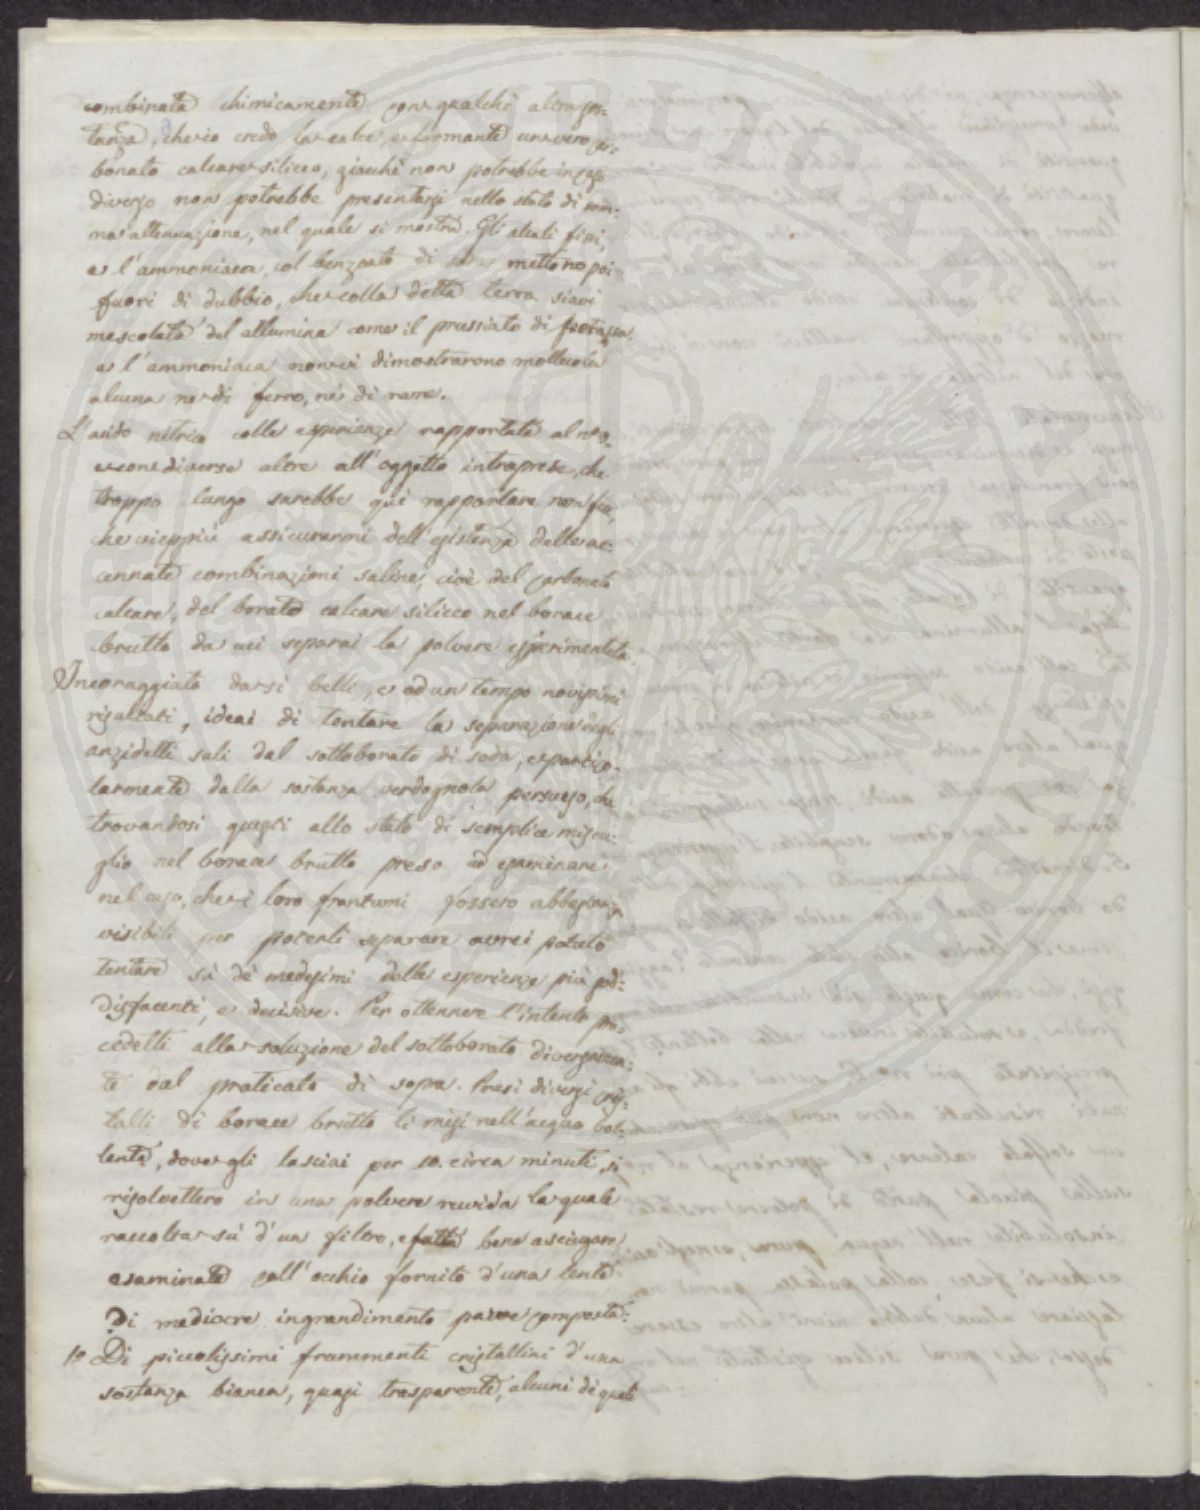 combinata chimicamente con qualche altra sos-
tanza, che io credo la calce, e formante un vero bo-
bonato calcare siliceo, giacchè non potrebbe in caso
diverso non potrebbe presentarsi nello stato di som-
ma attenuazione, nel quale si mostra. Gli alcali fissi,
e l'ammoniaca, col benzoato di soda mettono poi
fuori di dubbio, che colla detta terra siavi
mescolata del allumina come il prussiato di potassa,
e l'ammoniaca non vi dimostrarono mollecola
alcuna ne di ferro, nè di rame.
L'acido nitrico colle esperienze rapportate al n.o
e con diverse altre all'oggetto intraprese, che
troppo lungo sarebbe quì rapportare non fà,
che vieppiù assicurarmi dell'esistenza delle ac-
cennate combinazioni saline, cioè del carbonato
calcare, del borato calcare siliceo nel borace
brutto da cui separai la polvere esperimentata.
Incoraggiato da sì belli, e ad un tempo novissimi
risultati, ideai di tentare la separazione degli
anzidetti sali dal sottoborato di soda, e partico-
larmente dalla sostanza verdognola persuaso, che
trovandosi questi allo stato di semplice miscu-
glio nel borace brutto preso ad esaminare
nel caso, che i loro frantumi fossero abbastanza
visibili per poterli separare avrei potuto
tentare sù dè medesimi delle esperienze più sod-
disfacenti, e decisive. Per ottenere l'intento pro-
cedetti alla soluzione del sottoborato diversamen-
te dal praticato di sopra. Presi diversi cris-
talli di borace brutto li misi nell'acqua bol-
lente, dove gli lasciai per 10. circa minuti, si
risolvettero in una polvere ruvida la quale
raccolta sù d'un filtro, e fatta bene asciugare
esaminata coll'occhio fornito d'una lente
Di mediocre ingrandimento parve composta:
1o Di piccolissimi frammenti cristallini d'una
sostanza bianca, quasi trasparente, alcuni dè quali